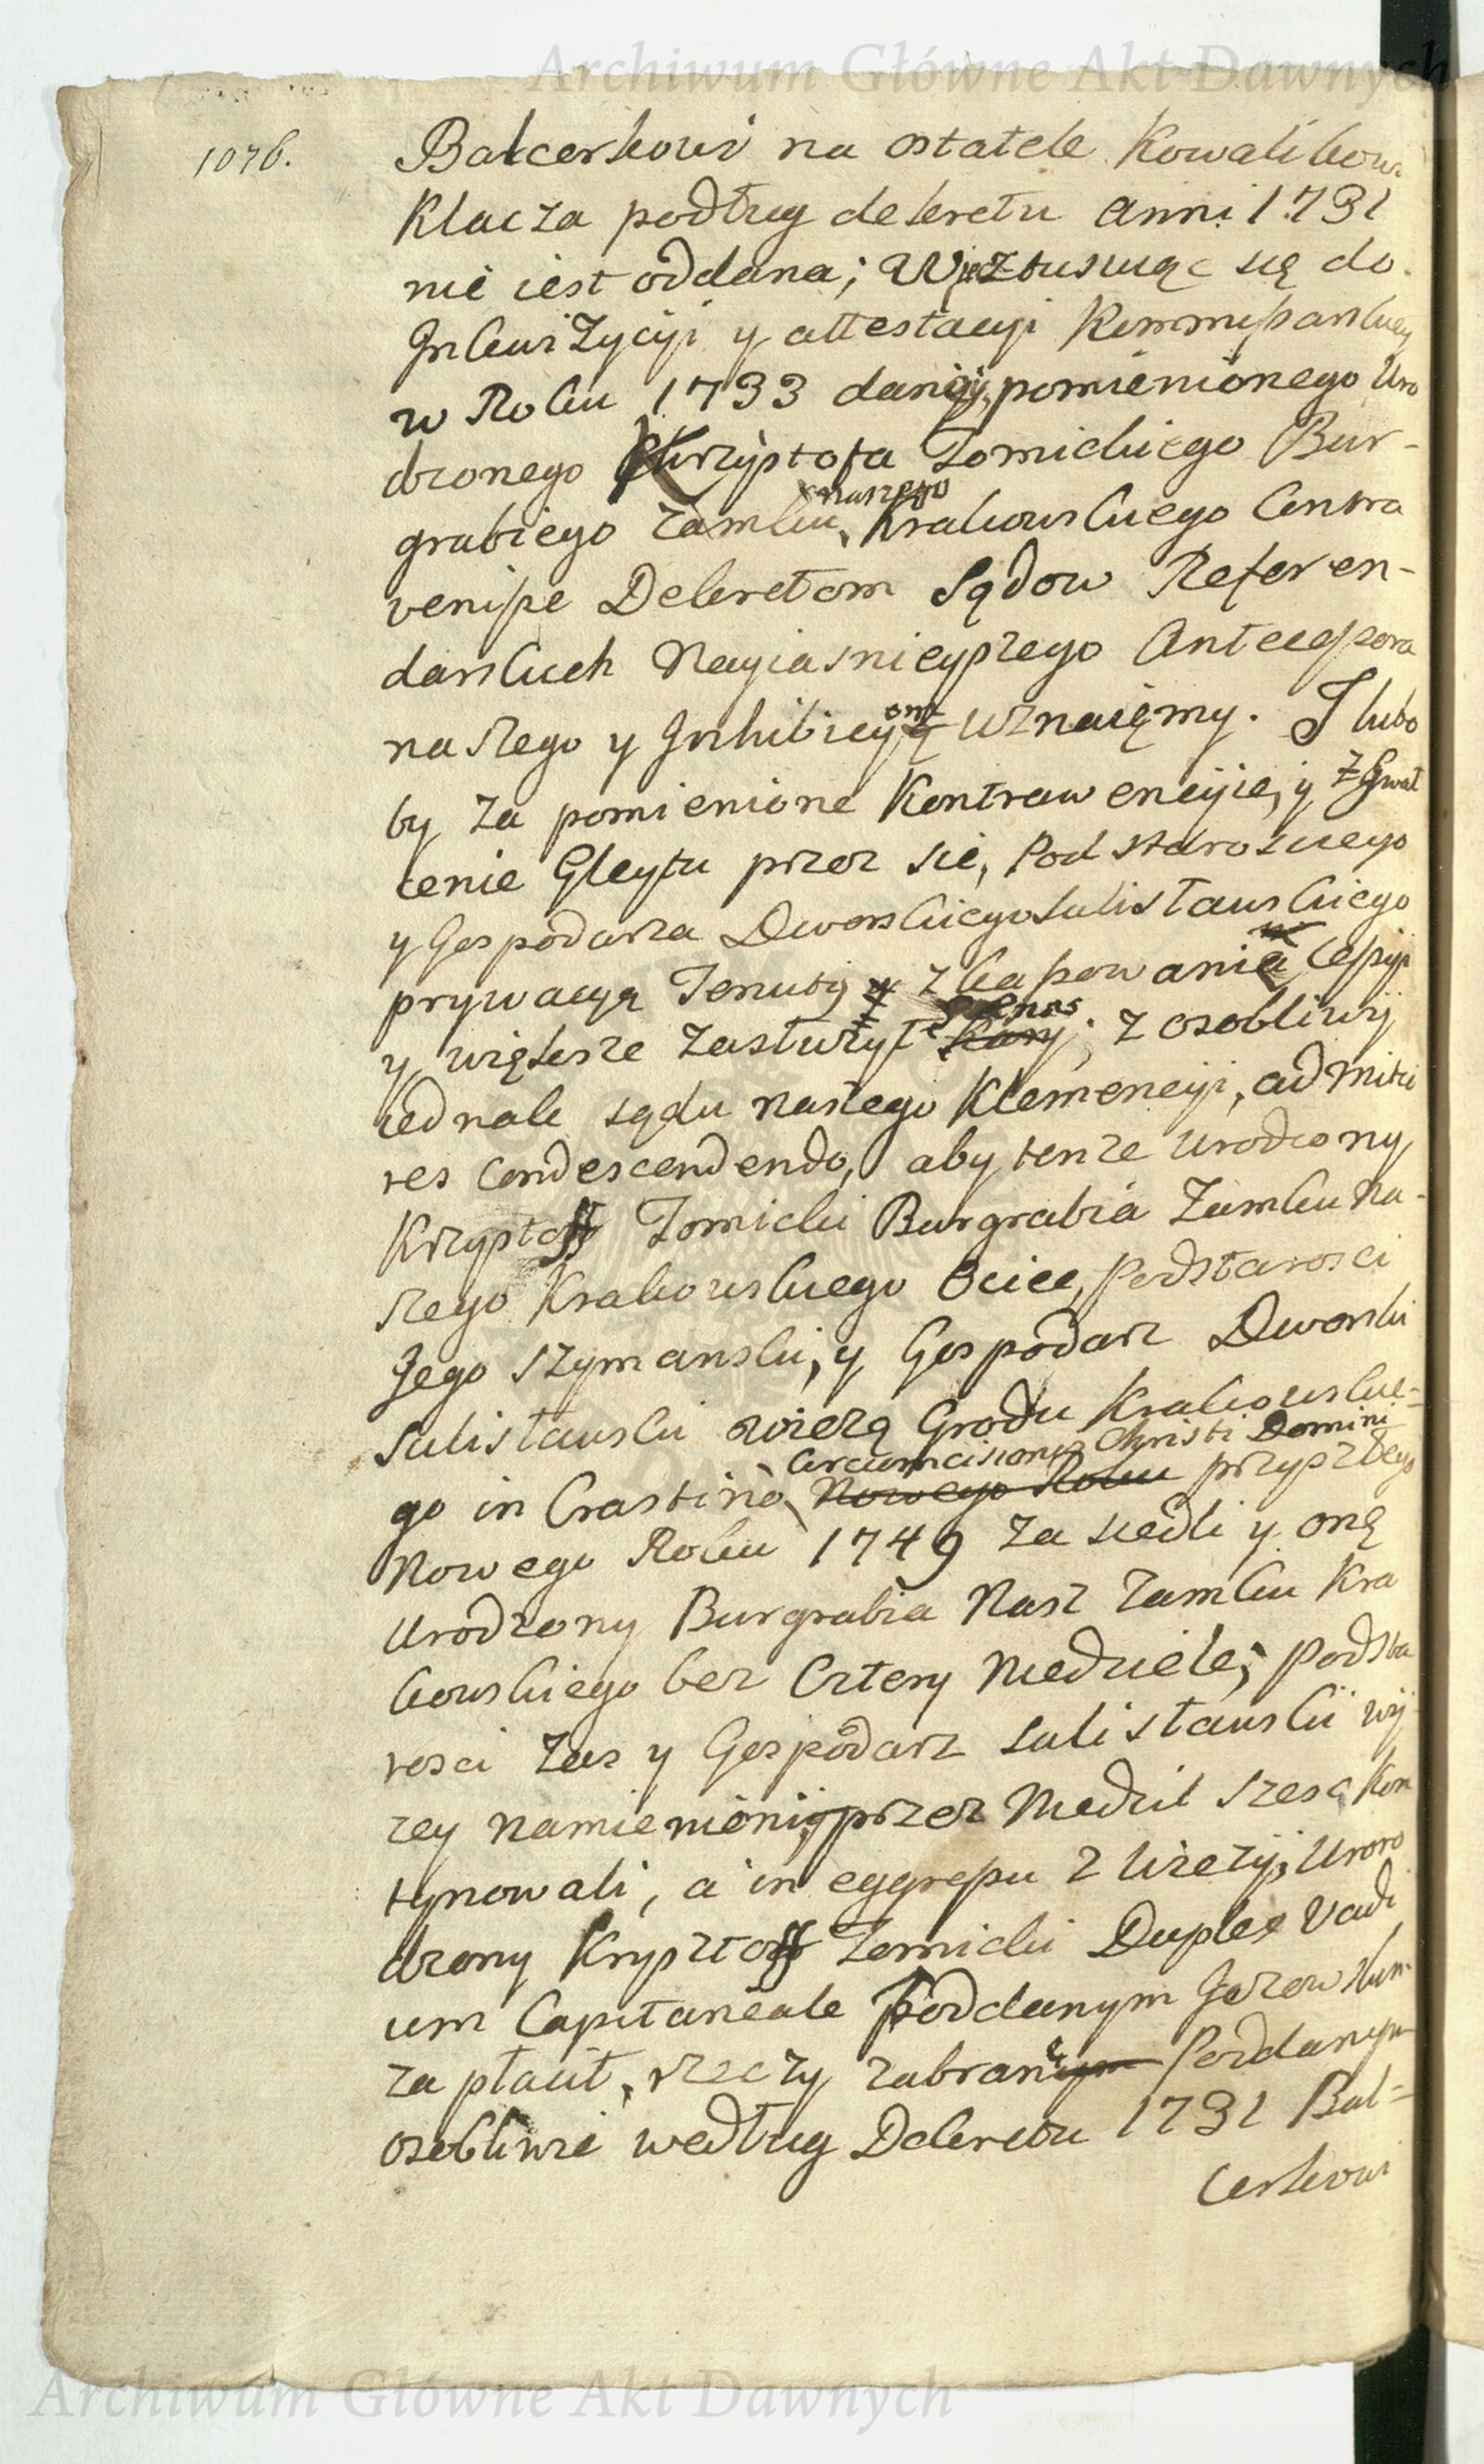 Archiwum Główne Akt Dawnych
1076.
Balcerkowi na ostatek Kowalikowi
Klacza podług dekretu anni 1731
nie iest oddana; Więc stusuiąc się do
Inkwizycyi y attestacyi Kommissarskiey
w Roku 1733 daney, pomienionego Uro
dzonego Krzysztofa Tomickiego Bur-
grabiego Zamku naszego Krakowskiego Contra
venisse Dekretom Sądow Referen-
darskich Nayiasnieyszego Antecessora
naszego y Inhibicyom uznaięmy. I lubo
by za pomienione Kontrawencyie, y zgwał
cenie Gleytu przez się, Podstarosciego
y Gospodarza Dworskiego Sulisławskiego
prywacyą Tenuty y z kassowania Cessyi
y większe zasłużył paenas kary; z osobliwy
iednak sądu naszego Klemencyi, ad mitio
res condescendendo, aby tenze Urodzony
Krzysztoff Tomicki Burgrabia Zamku Na-
szego Krakowskiego Ociec, Podstarosci
Jego Szymanski, y Gospodarz Dworski
Sulisławski wiezą Grodu Krakowskie-
go in Crastino Circumcisionis Christi Domini Nowego Roku przyszłego
Nowego Roku 1749 zasiedli y onę
Urodzony Burgrabia Nasz Zamku Kra
kowskiego bez Cztery Niedziele; Podsta
rosci zas y Gospodarz Sulisławski wy
zey namienioni, przez Niedziel szesc Kon
tynowali, a in eggressu z Wiezy, Uro
dzony Krysztoff Tomicki Duplex Vadi
um Capitaneale Poddanym Jezowskim
zapłacił, rzeczy zabrane Poddanym
osobliwie według Dekretu 1731 Bal=
cerkowi
Archiwum Główne Akt Dawnych